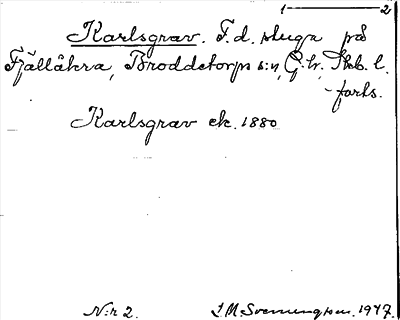 1 2
Karlsgrav. F.d. stuga på
Fjällåkra, Broddetorps s:n, G. hr, Skb. l.
- forts.
Karlsgrav ek. 1880
N:r 2. I.M. Svenungsson. 1947.